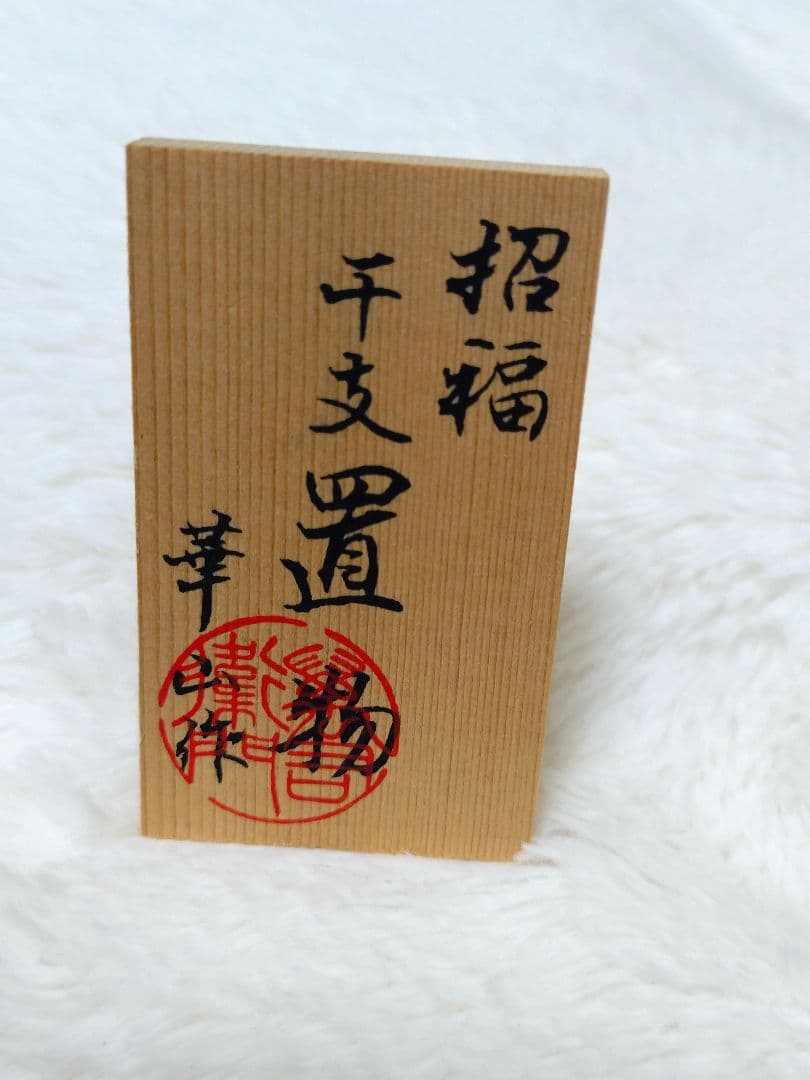 招福
干支置物
華山作